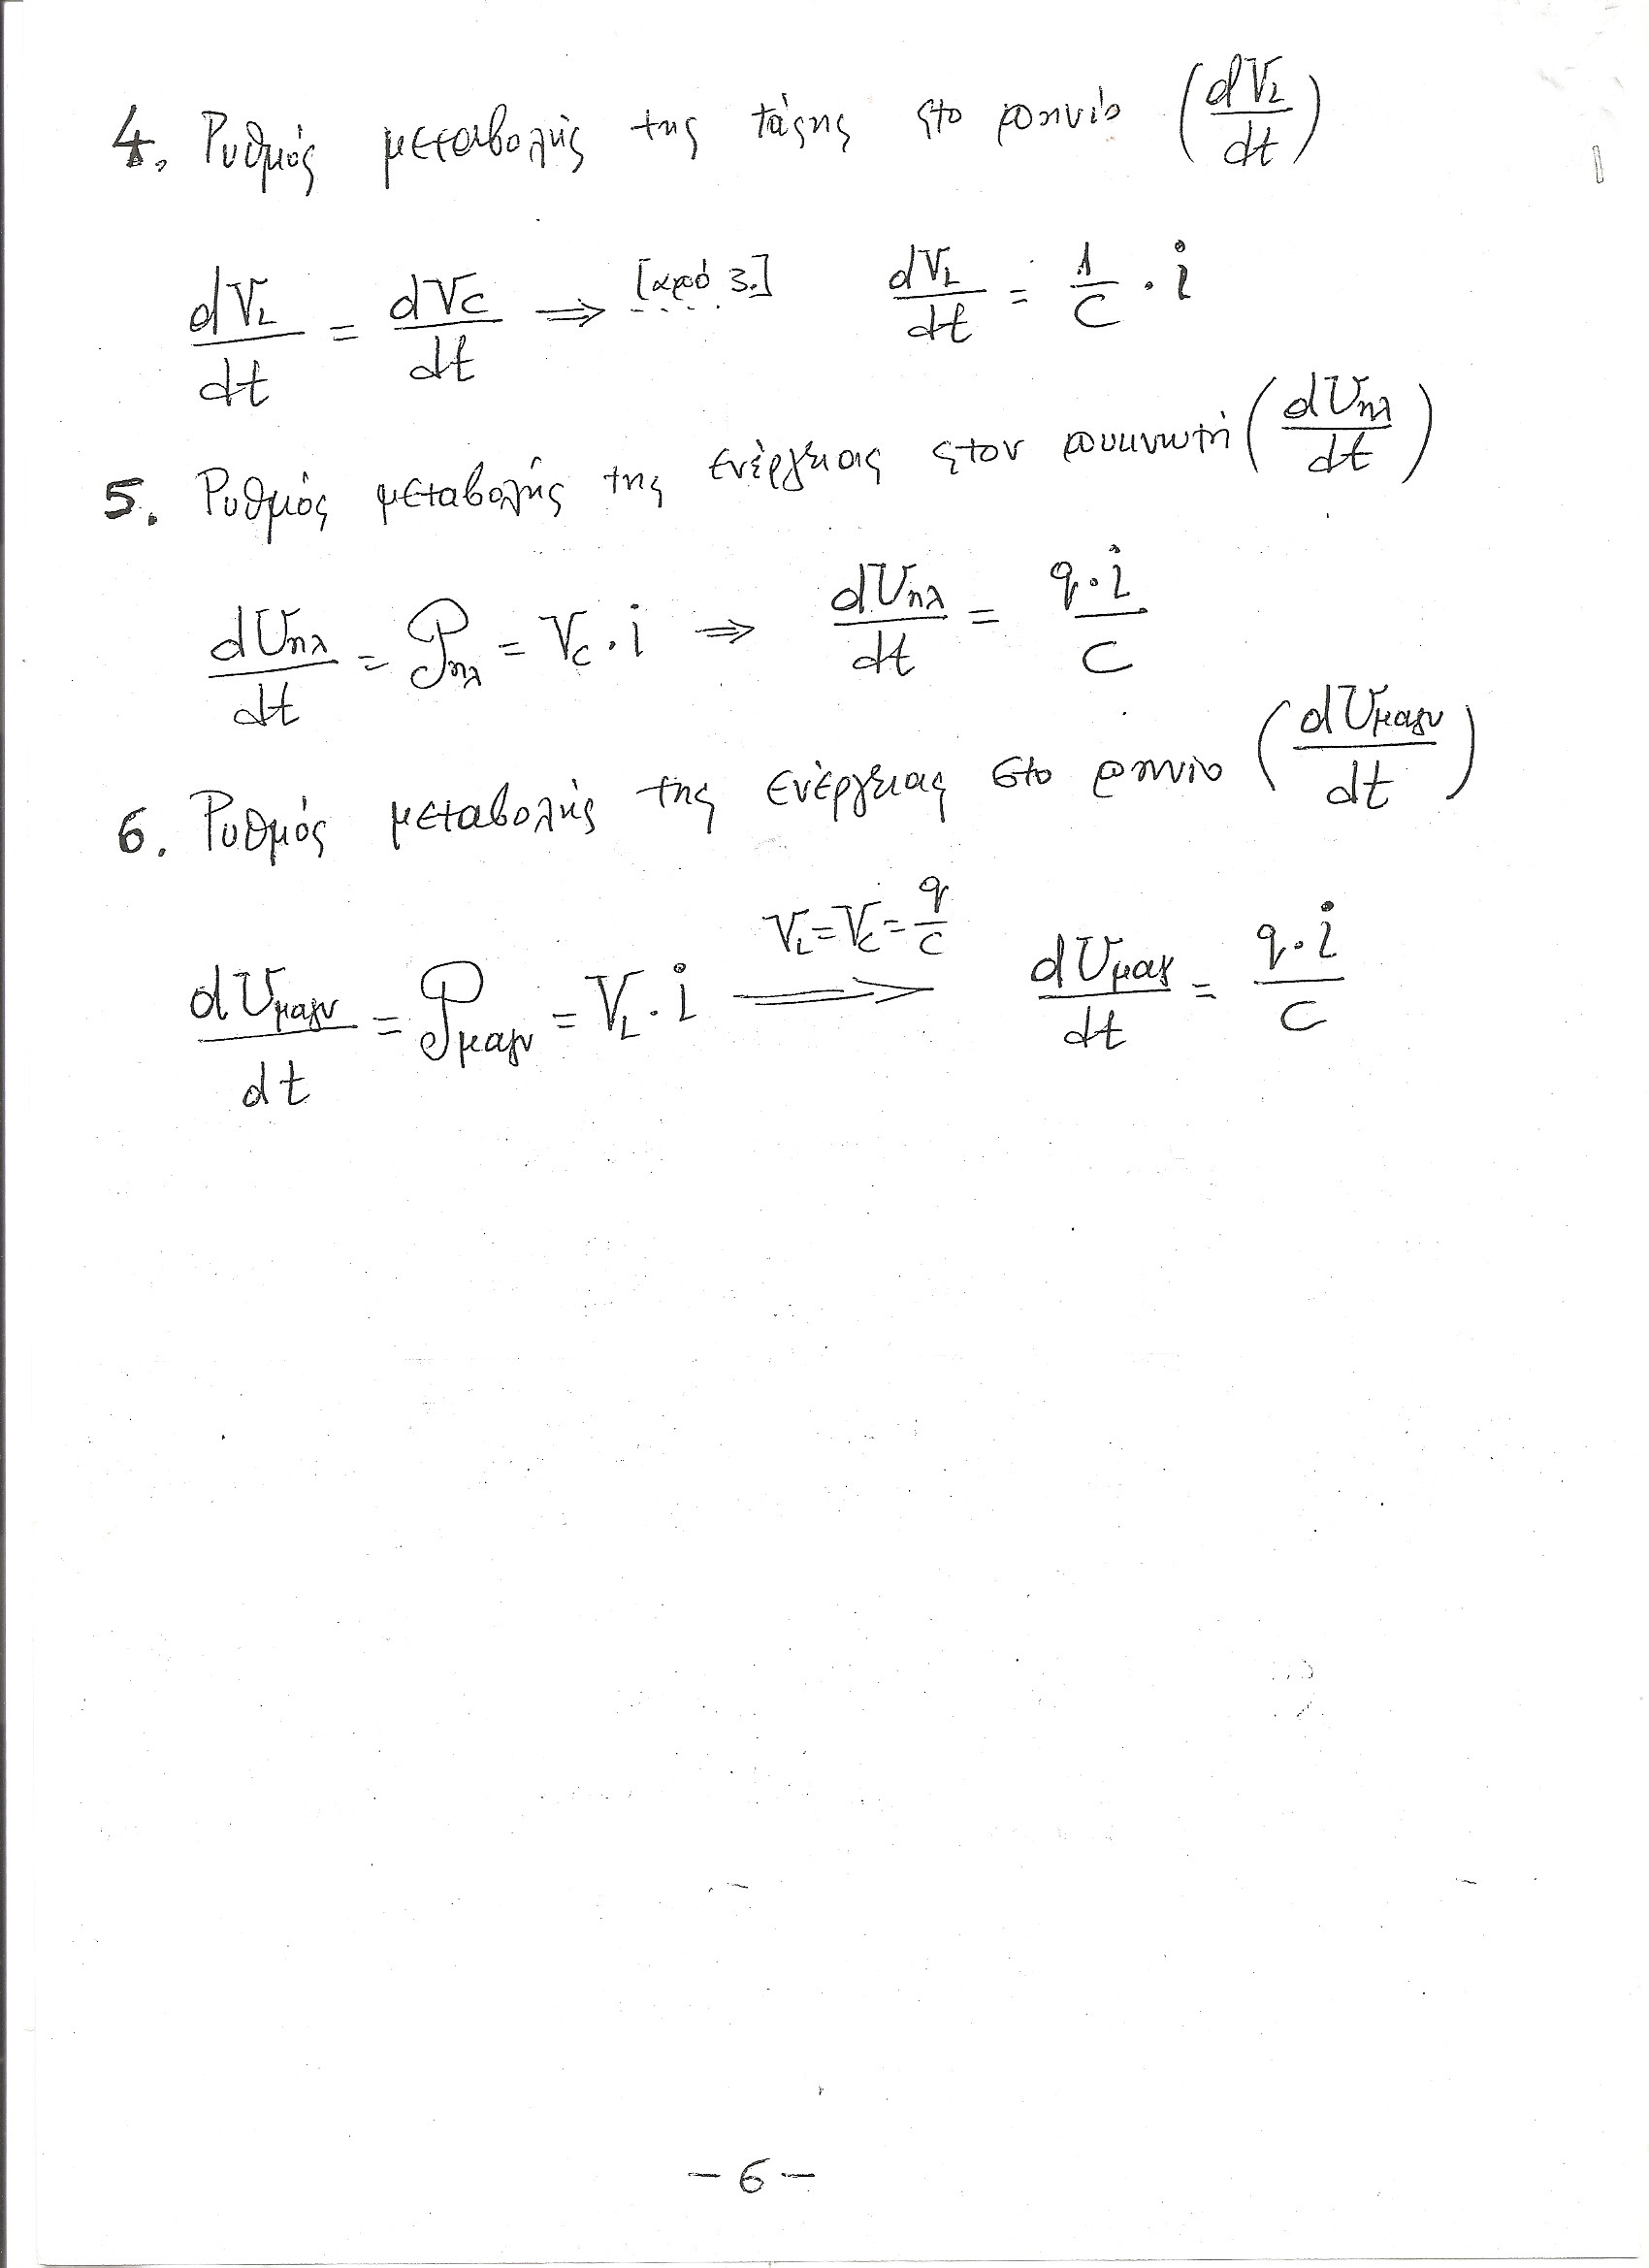 4. Ρυθμός μεταβολής της τάσης στο πηνίο (dV_L/dt)
dV_L/dt = dV_C/dt ⇒ [από 3.] ..... dV_L/dt = 1/C · i
5. Ρυθμός μεταβολής της ενέργειας στον πυκνωτή (dU_ηλ/dt)
dU_ηλ/dt = P_ηλ = V_C · i ⇒ dU_ηλ/dt = q·i/C
6. Ρυθμός μεταβολής της ενέργειας στο πηνίο (dU_μαγν/dt)
dU_μαγν/dt = P_μαγν = V_L · i ⟹ V_L=V_C=q/C dU_μαγ/dt = q·i/C
- 6 -